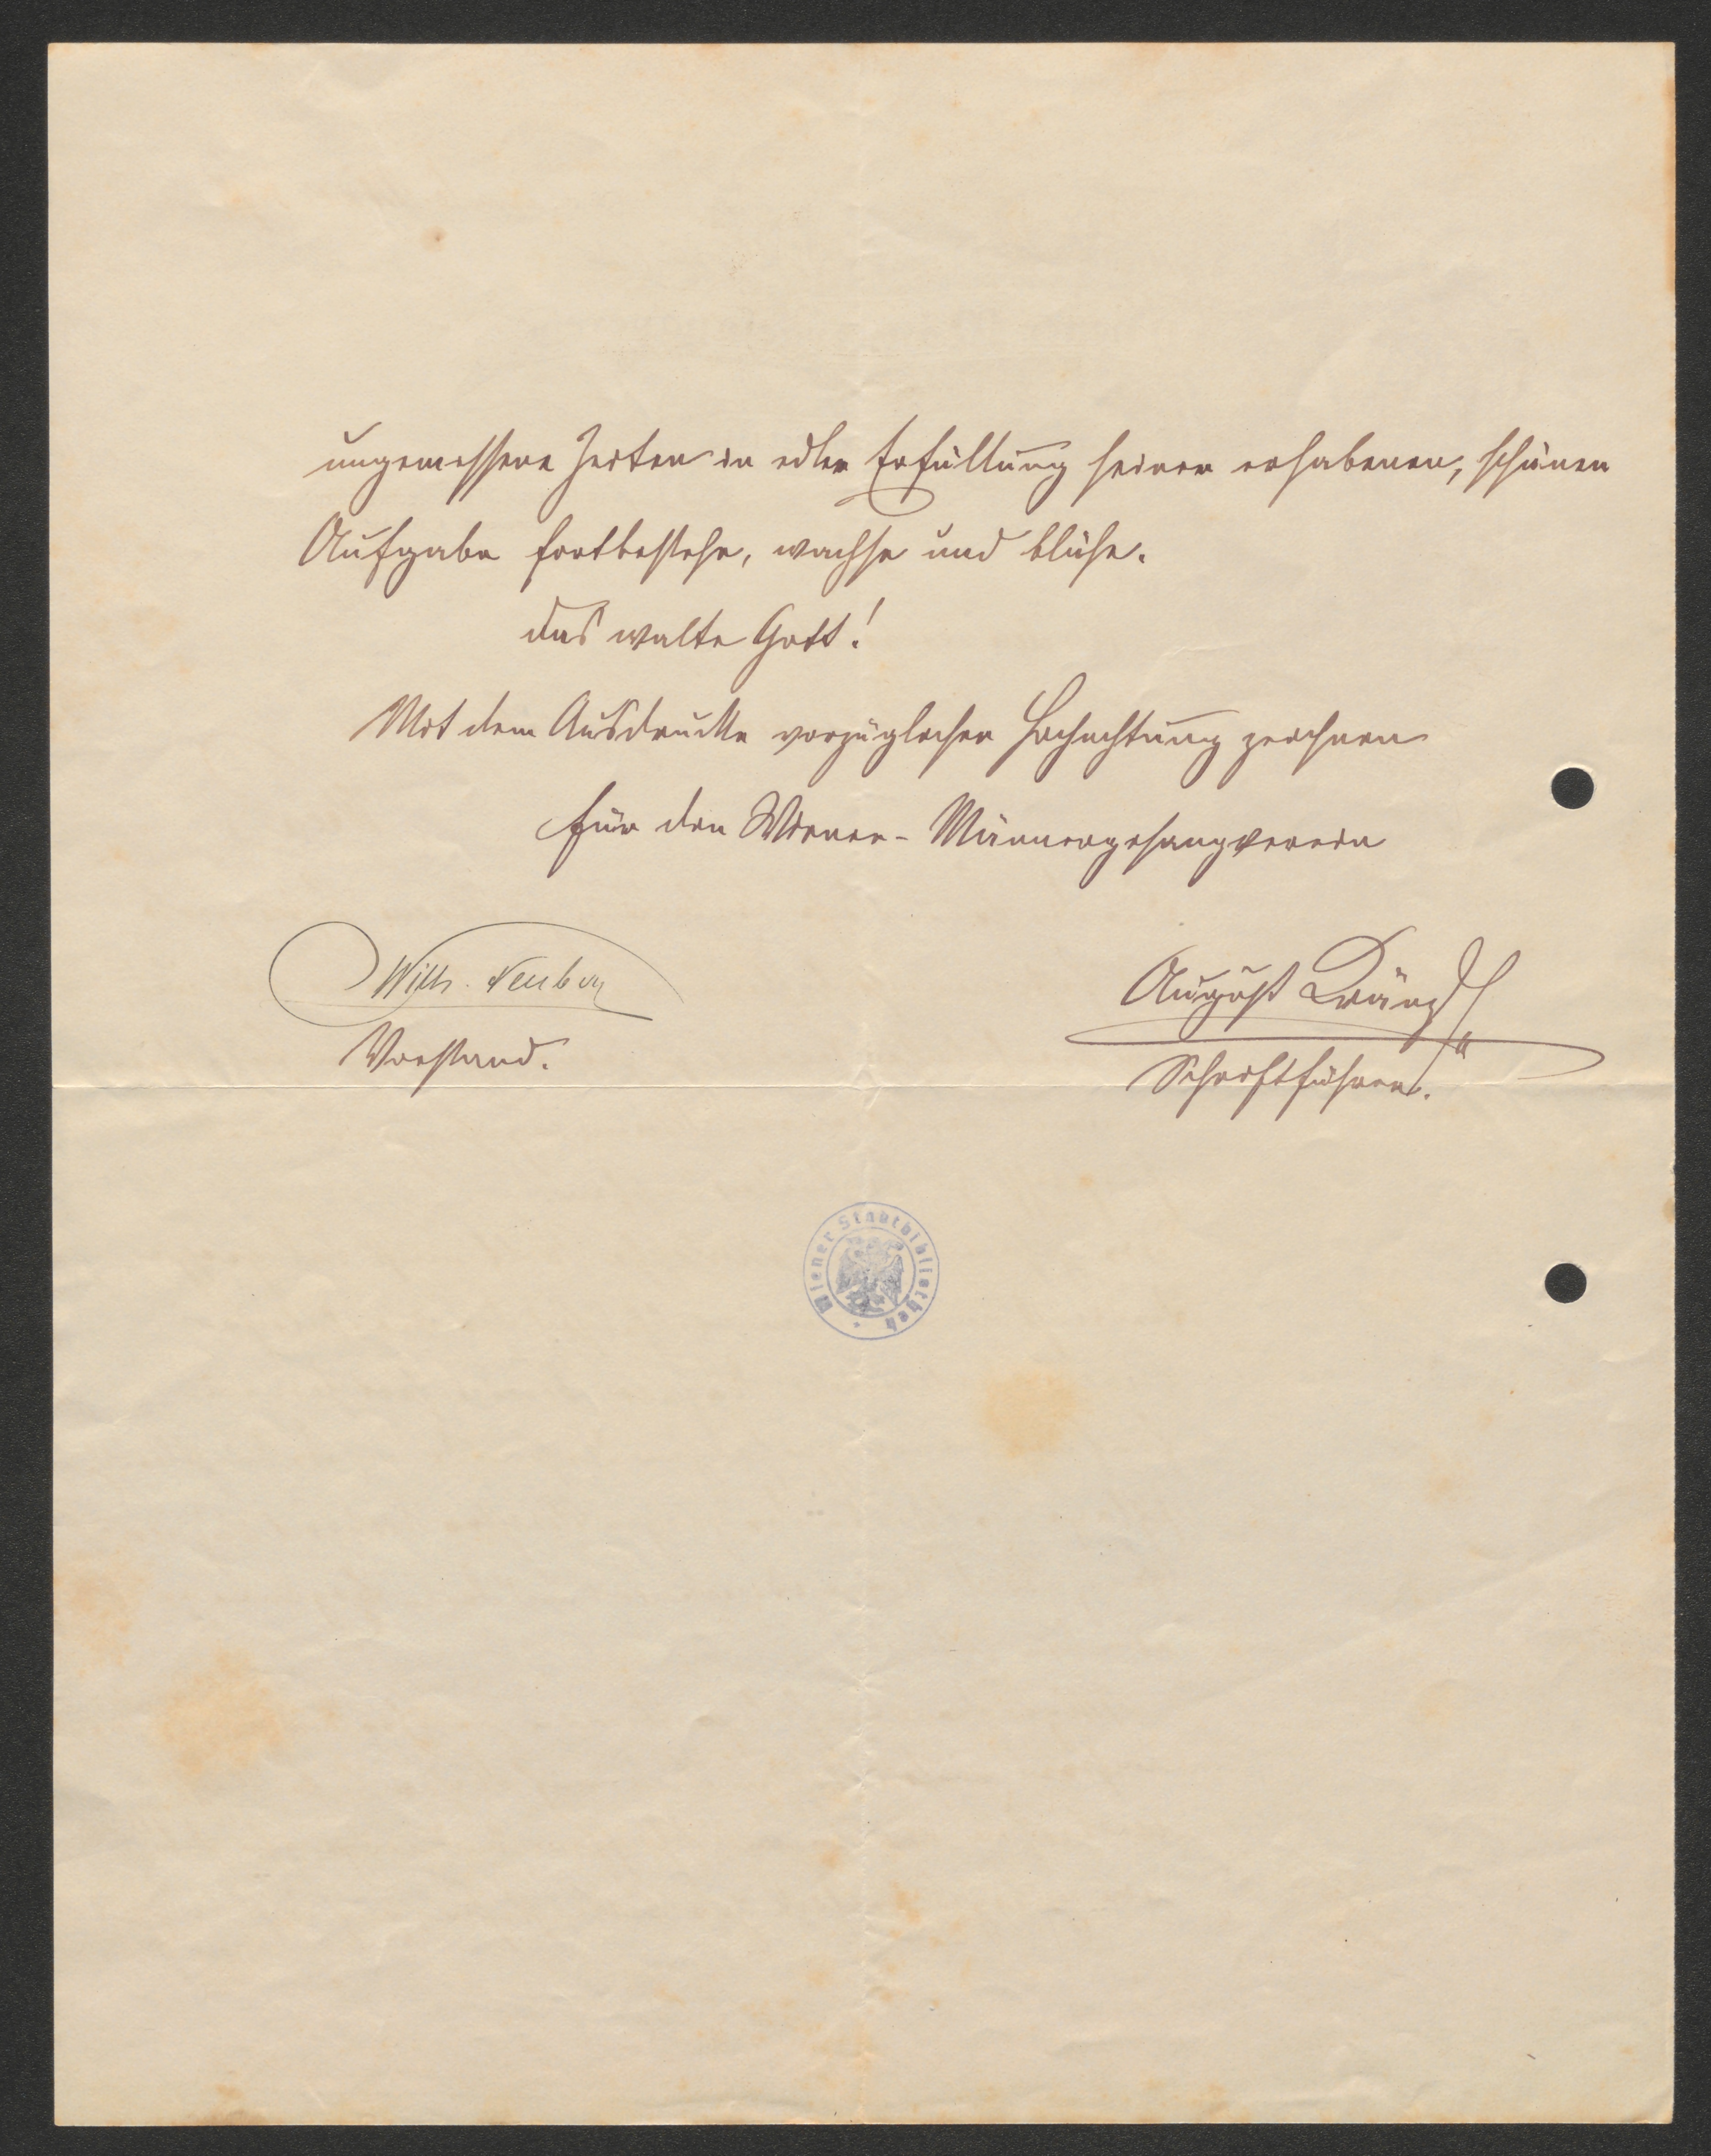 ungemessene Zeiten in edler Erfüllung seiner erhabenen, schönen
Aufgabe fortbestehe, wachse und blühe.
Das walte Gott!
Mit dem Ausdrucke vorzüglicher Hochachtung zeichnen
für den Wiener-Männergesangverein
Wilh. Neuber
Vorstand.
August
Schriftführer.
Wiener Stadtbibliothek